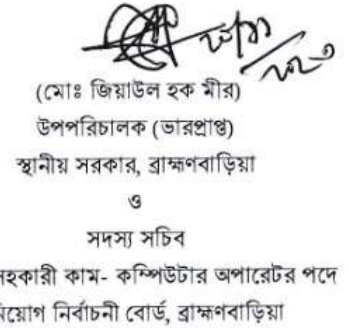 (মোঃ জিয়াউল হক মীর)
উপপরিচালক (ভারপ্রাপ্ত)
স্থানীয় সরকার, ব্রাহ্মণবাড়িয়া
ও
সদস্য সচিব
কাম- কম্পিউটার অপারেটর পদে
নির্বাচনী বোর্ড, ব্রাহ্মণবাড়িয়া